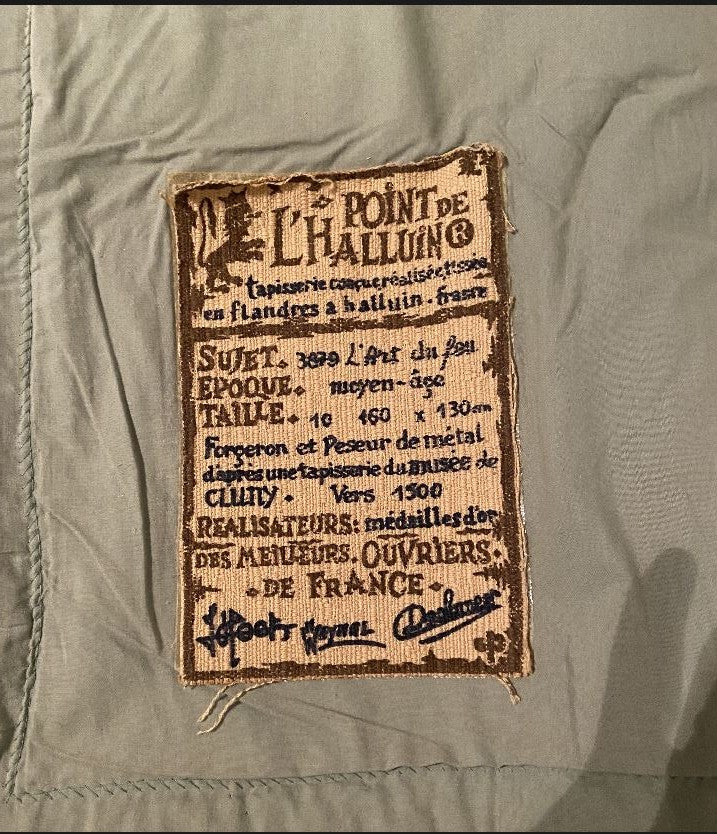 POINT DE
L'HALLUIN®
tapisserie conçue réalisée tissée
en flandres a halluin. france
SUJET. 3679 L'Art du feu
EPOQUE. moyen-âge
TAILLE. 10 160 x 130cm
Forgeron et Peseur de métal
d'après une tapisserie du musée de
CLUNY. Vers 1500
REALISATEURS: médailles d'or
DES MEILLEURS OUVRIERS.
DE FRANCE